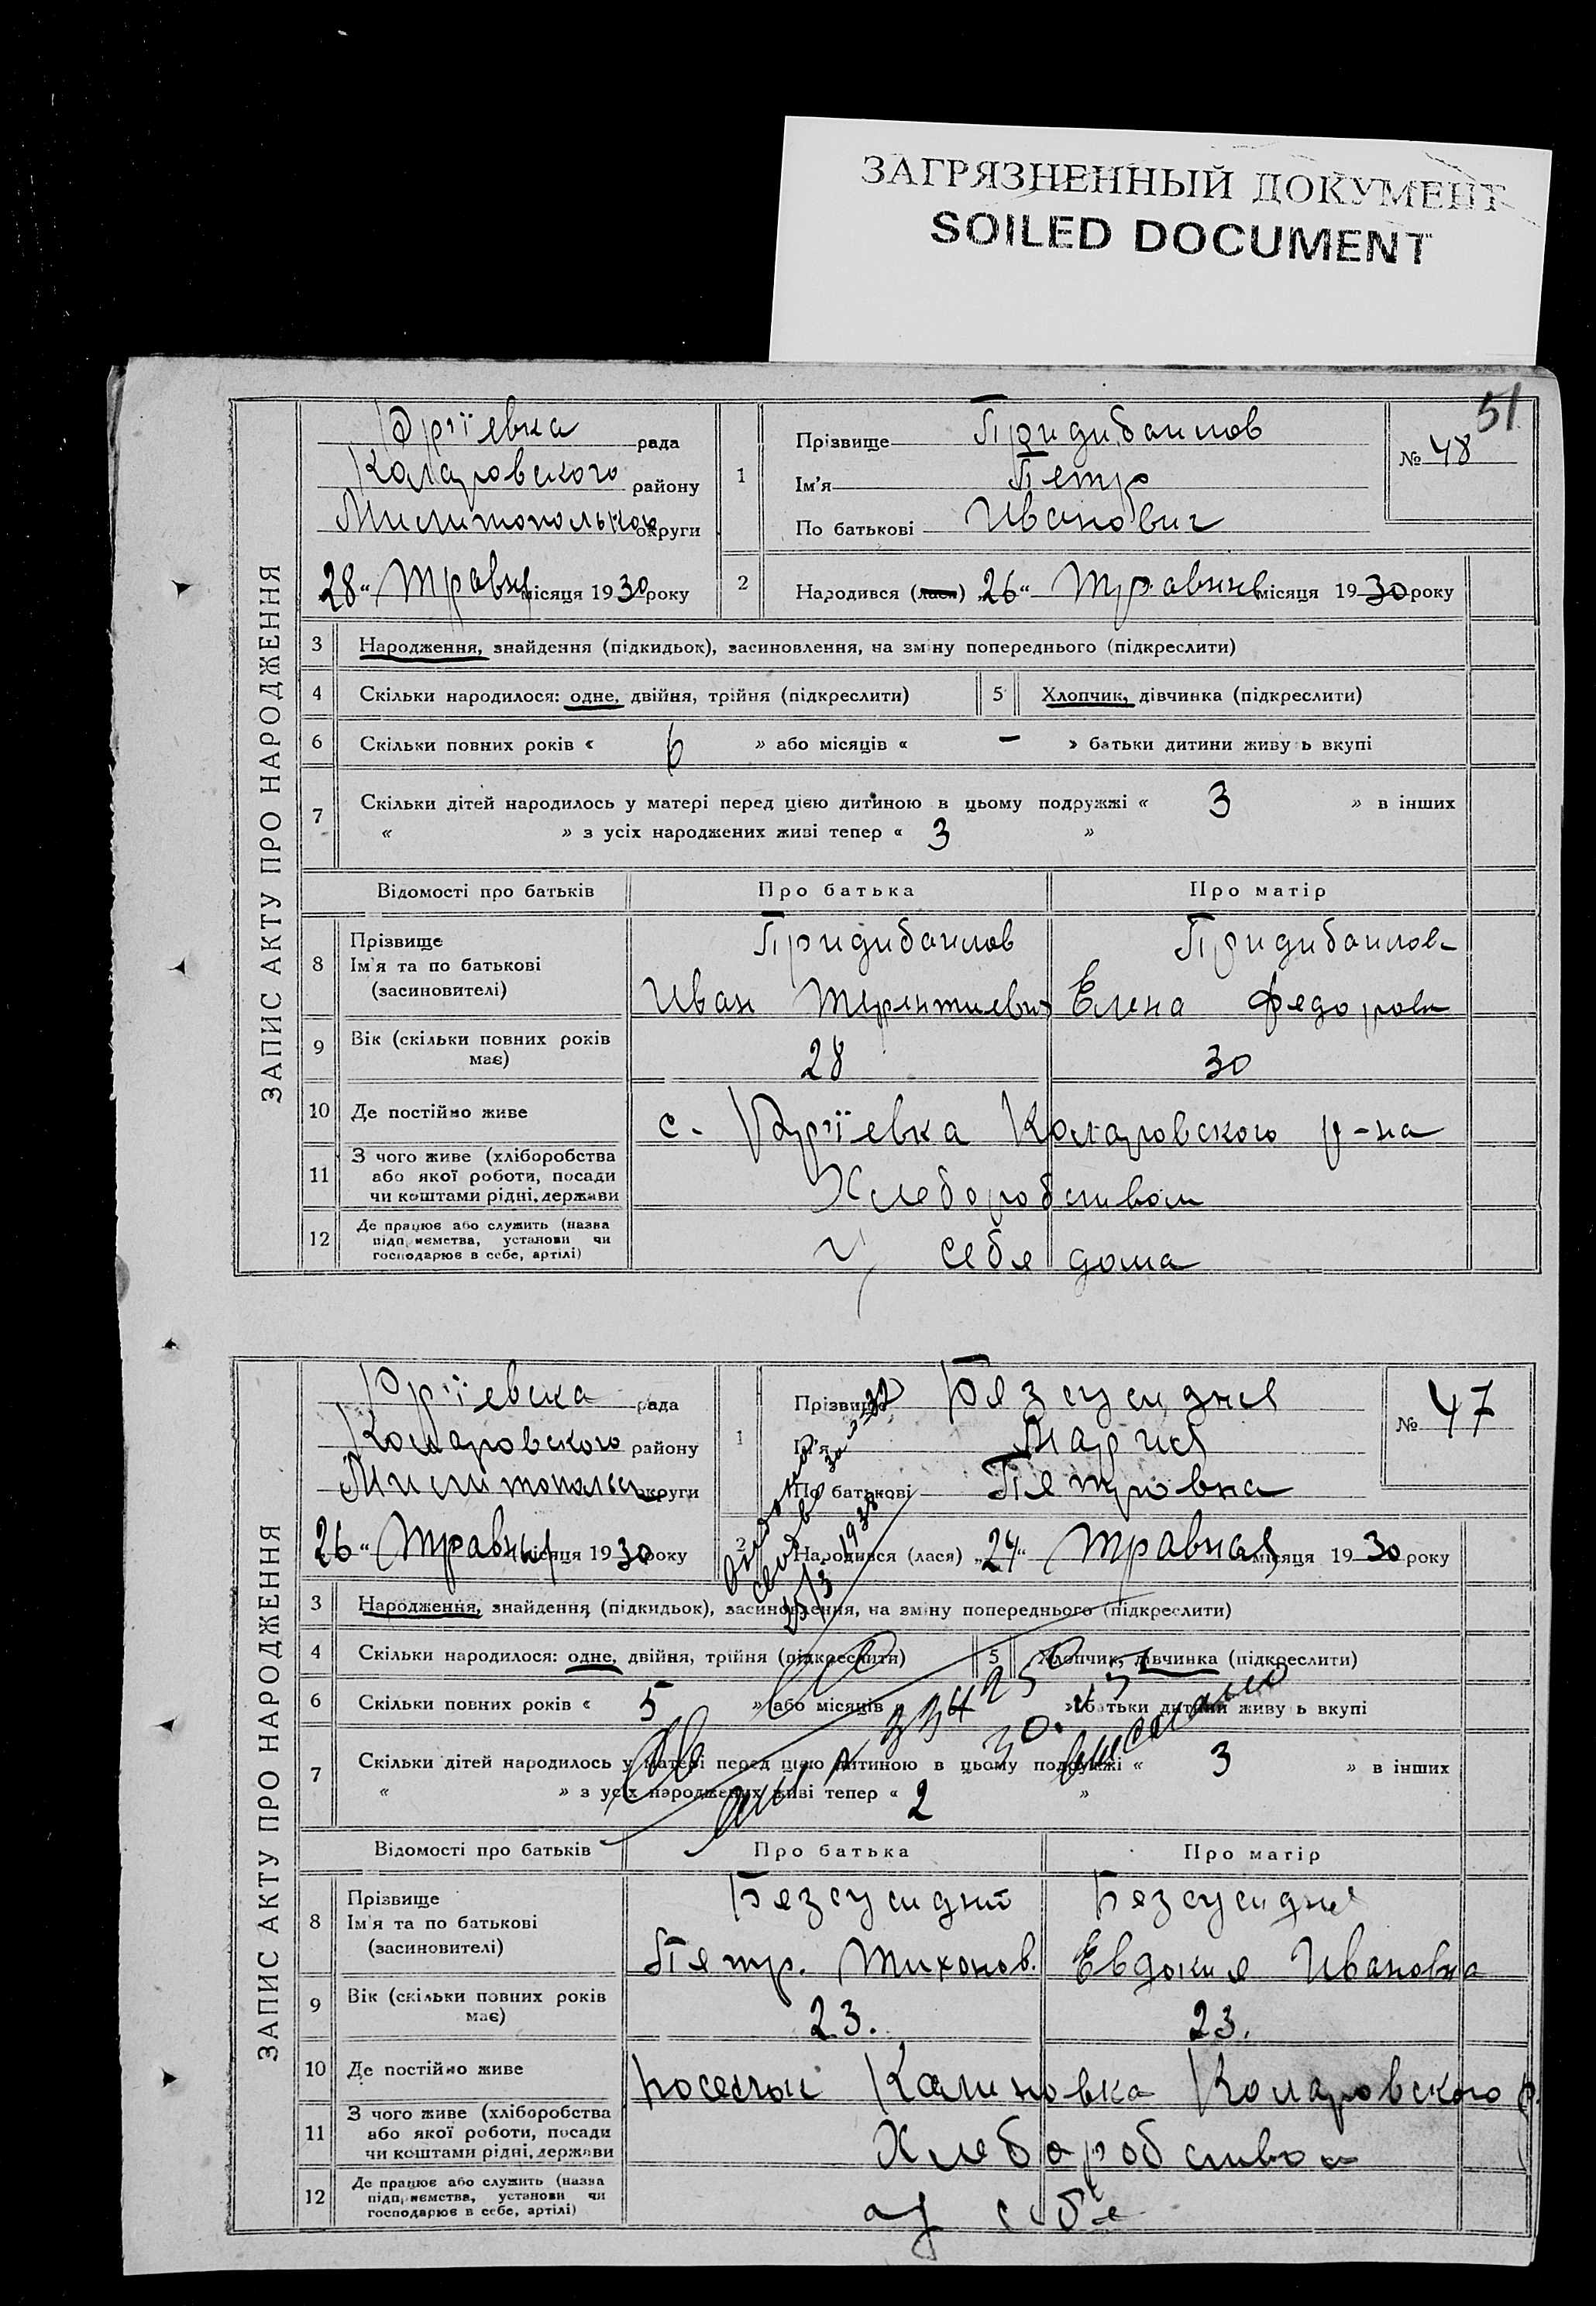 ЗАГРЯЗНЕННЫЙ ДОКУМЕНТ
SOILED DOCUMENT
51
ЗАПИС АКТУ ПРО НАРОДЖЕННЯ
Юріевка рада
Коларовского району
Милитопольськои округи
28 " Травня місяця 1930 року
1 Прізвище Придибаилов
Ім'я Петр
По батькові Иванович
№ 48
2 Народився (лася) "26" Травня місяця 1930 року
3 Народження, знайдення (підкидьок), засиновлення, на зміну попереднього (підкреслити)
4 Скільки народилося: одне, двійня, трійня (підкреслити) 5 Хлопчик, дівчинка (підкреслити)
6 Скільки повних років « 6 » або місяців « – » батьки дитини живуть вкупі
7 Скільки дітей народилось у матері перед цією дитиною в цьому подружжі « 3 » в інших
« » з усіх народжених живі тепер « 3 »
Відомості про батьків Про батька Про матір
8 Прізвище
Ім'я та по батькові
(засиновителі)
Придибаилов Придибаилов
Иван Терентиевич Елена Федоровн
9 Вік (скільки повних років має) 28 30
10 Де постійно живе с. Юріевка Коларовского р-на
11 З чого живе (хліборобства або якої роботи, посади чи коштами рідні, держави Хлеборобством
12 Де працює або служить (назва підприємства, установи чи господарює в себе, артілі) у себя дома
ЗАПИС АКТУ ПРО НАРОДЖЕННЯ
Юріевска рада
Коларовского району
Милитопольск округи
26 " Травня місяця 1930 року
1 Прізвище Безсусидня
Ім'я Мария
По батькові Петровна
№ 47
2 Народився (лася) "24" Травная місяця 1930 року
3 Народження, знайдення (підкидьок), засиновлення, на зміну попереднього (підкреслити)
4 Скільки народилося: одне, двійня, трійня (підкреслити) 5 Хлопчик, дівчинка (підкреслити)
6 Скільки повних років « 5 » або місяців « » батьки дитини живуть вкупі
7 Скільки дітей народилось у матері перед цією дитиною в цьому подружжі « 3 » в інших
« » з усіх народжених живі тепер « 2 »
Відомості про батьків Про батька Про матір
8 Прізвище
Ім'я та по батькові
(засиновителі)
Безсусидний Безсусидня
Петр. Тихонов. Евдокия Ивановна
9 Вік (скільки повних років має) 23. 23.
10 Де постійно живе Поселок Калиновка Коларовского р.
11 З чого живе (хліборобства або якої роботи, посади чи коштами рідні, держави Хлеборобством
12 Де працює або служить (назва підприємства, установи чи господарює в себе, артілі) себе